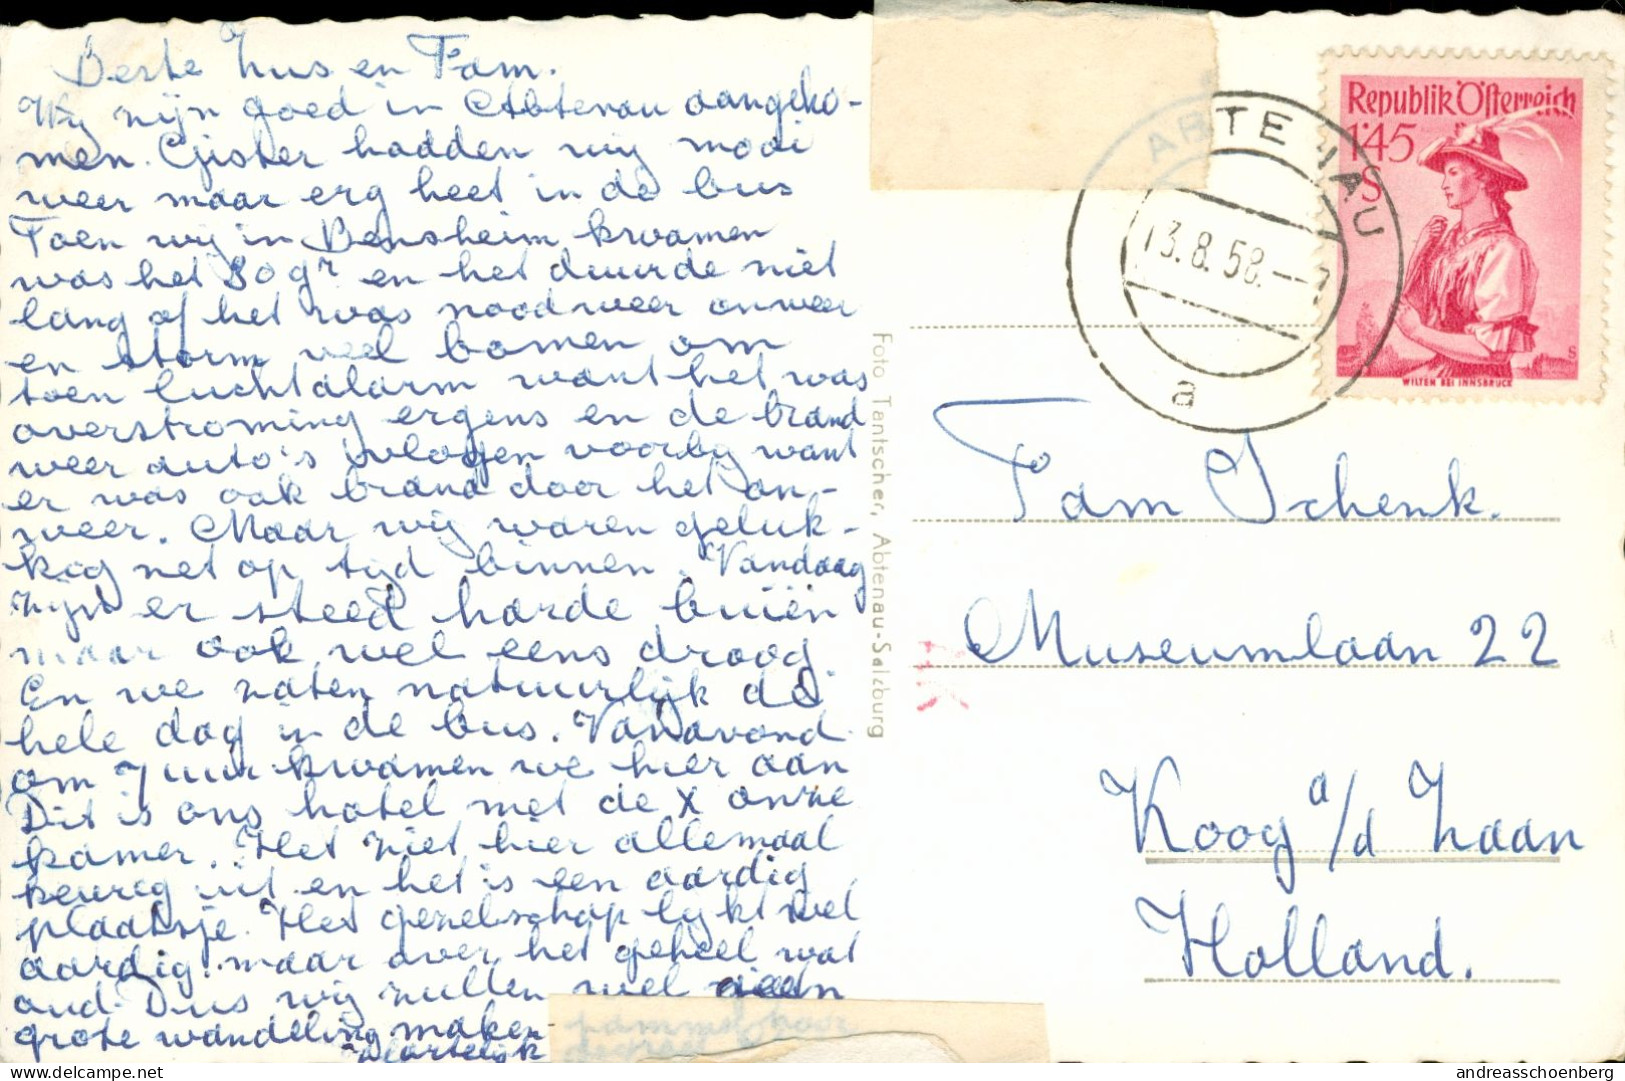 Beste Zus en Fam.
Wij zijn goed in Abtenau aangeko-
men. Gister hadden wij mooi
weer maar erg heet in de bus
Toen wij in Bensheim kwamen
was het 30 gr en het duurde niet
lang of het was noodweer onweer
en storm veel bomen om
toen luchtalarm want het was
overstroming ergens en de brand
weer auto's vlogen voorbij want
er was ook brand door het on-
weer. Maar wij waren geluk-
kig net op tijd binnen. Vandaag
zijn er steed harde buiën
maar ook wel eens droog
En we zaten natuurlijk de
hele dag in de bus. Vanavond
om 7 uur kwamen we hier aan
Dit is ons hotel met de X onze
kamer. Het ziet hier allemaal
keurig uit en het is een aardig
plaatsje. Het gezelschap lijkt wel
aardig maar over het geheel wat
oud. Dus wij zullen wel geen
grote wandeling maken
Hartelijk
Foto Tantscher, Abtenau-Salzburg
Republik Österreich
1'45
S
WILTEN BEI INNSBRUCK
ABTENAU
13.8.58.--
a
Fam Schenk.
Museumlaan 22
Koog a/d Zaan
Holland.
andreasschoenberg